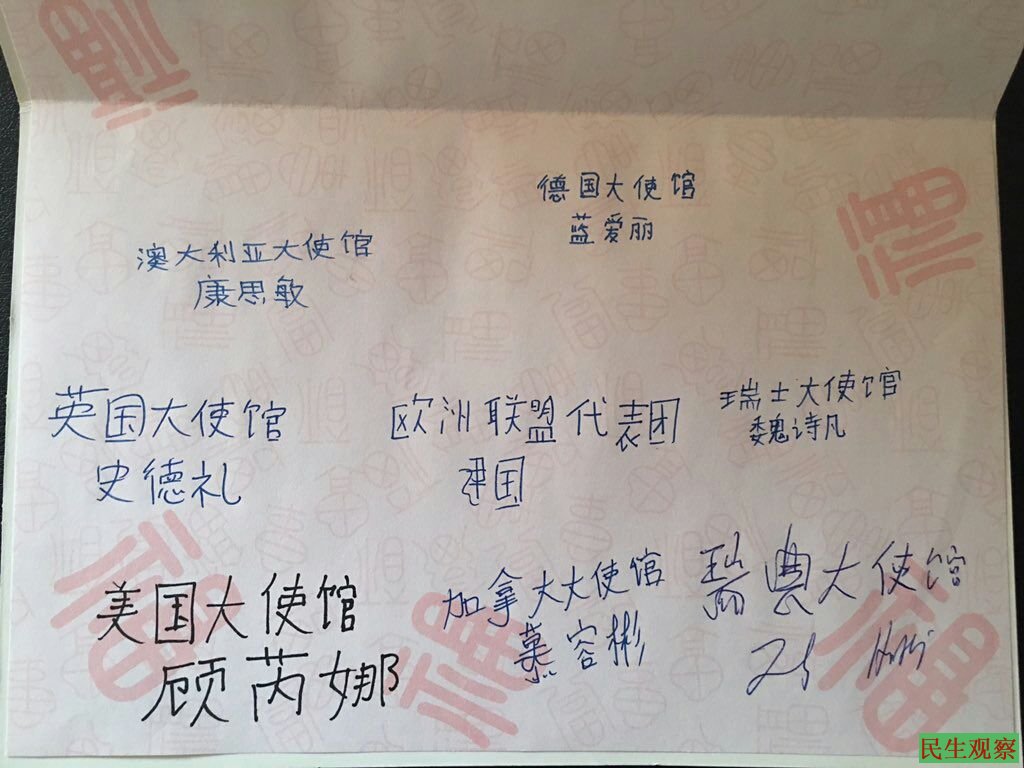 德国大使馆
蓝爱丽
澳大利亚大使馆
康思敏
英国大使馆
史德礼
欧洲联盟代表团
建国
瑞士大使馆
魏诗凡
美国大使馆
顾芮娜
加拿大大使馆
慕容彬
瑞典大使馆
民生观察